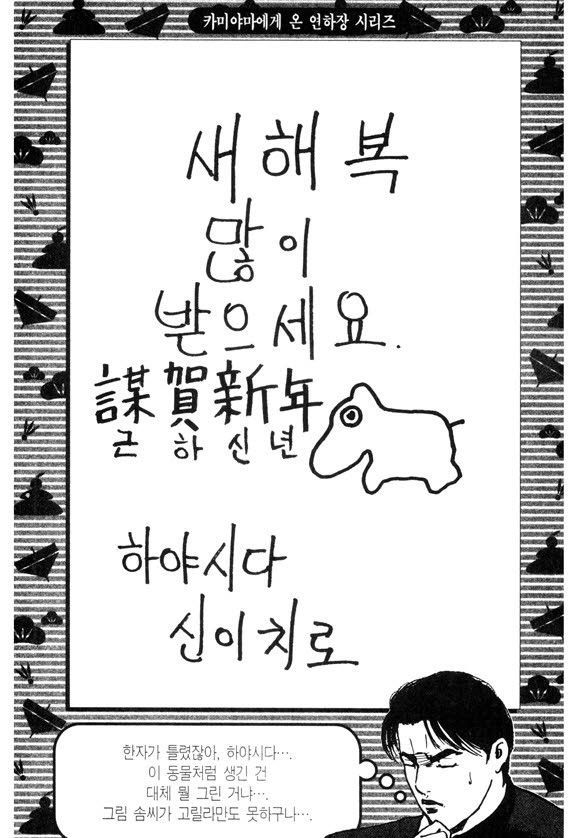 카미야마에게 온 연하장 시리즈
새해 복
많이
받으세요.
謀賀新年
근하신년
하야시다
신이치로
한자가 틀렸잖아, 하야시다….
이 동물처럼 생긴 건
대체 뭘 그린 거냐….
그림 솜씨가 고릴라만도 못하구나….